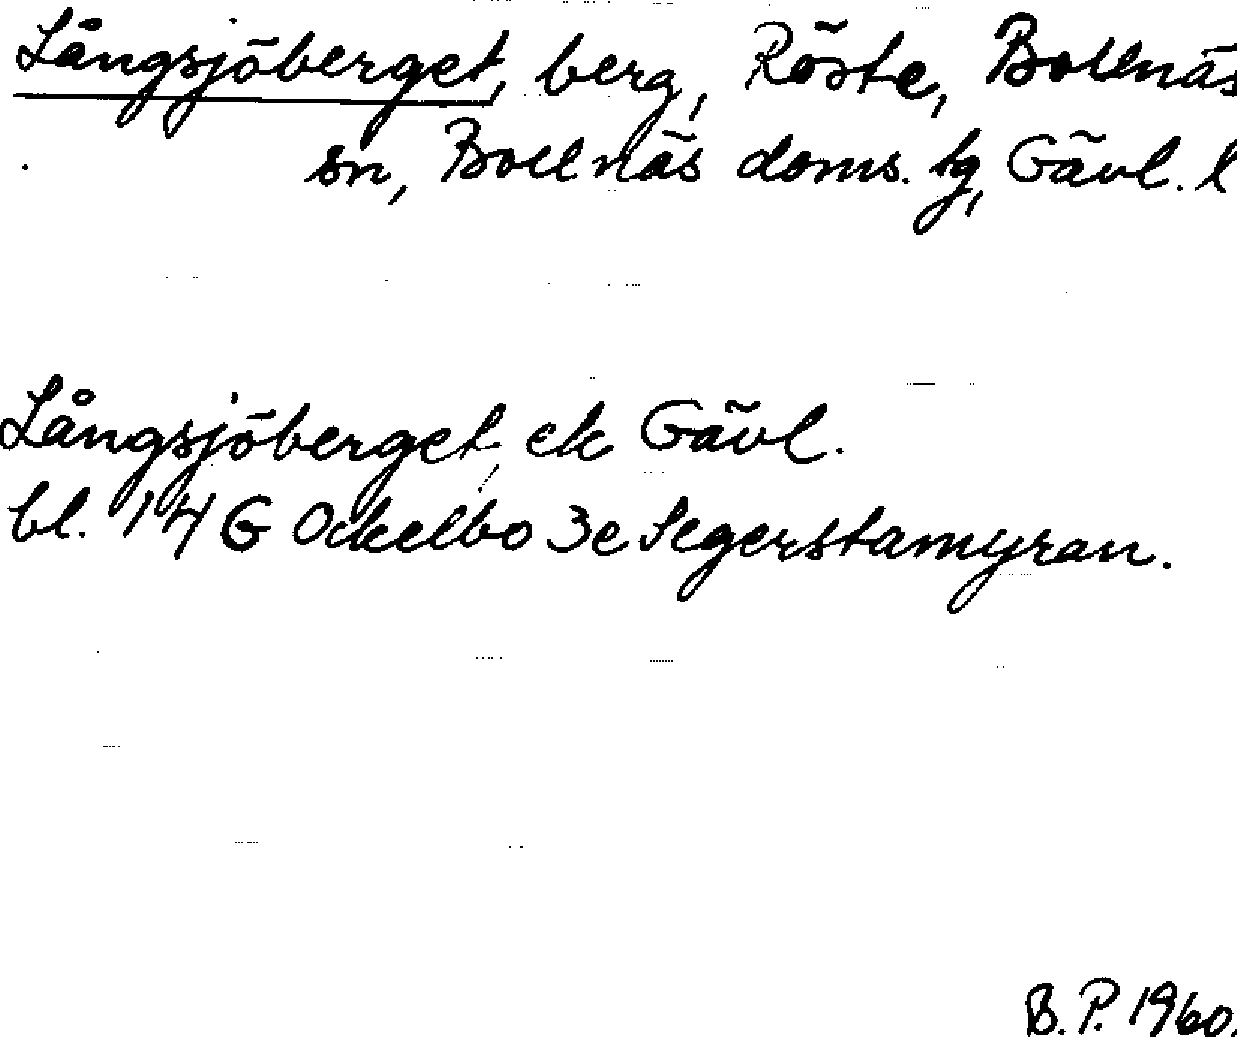 Långsjöberget, berg, Röste, Bollnäs
sn, Bollnäs doms. tg, Gävl. l
Långsjöberget, ek Gävl.
bl. 14 G Ockelbo 3e Segerstamyran.
B. P. 1960.